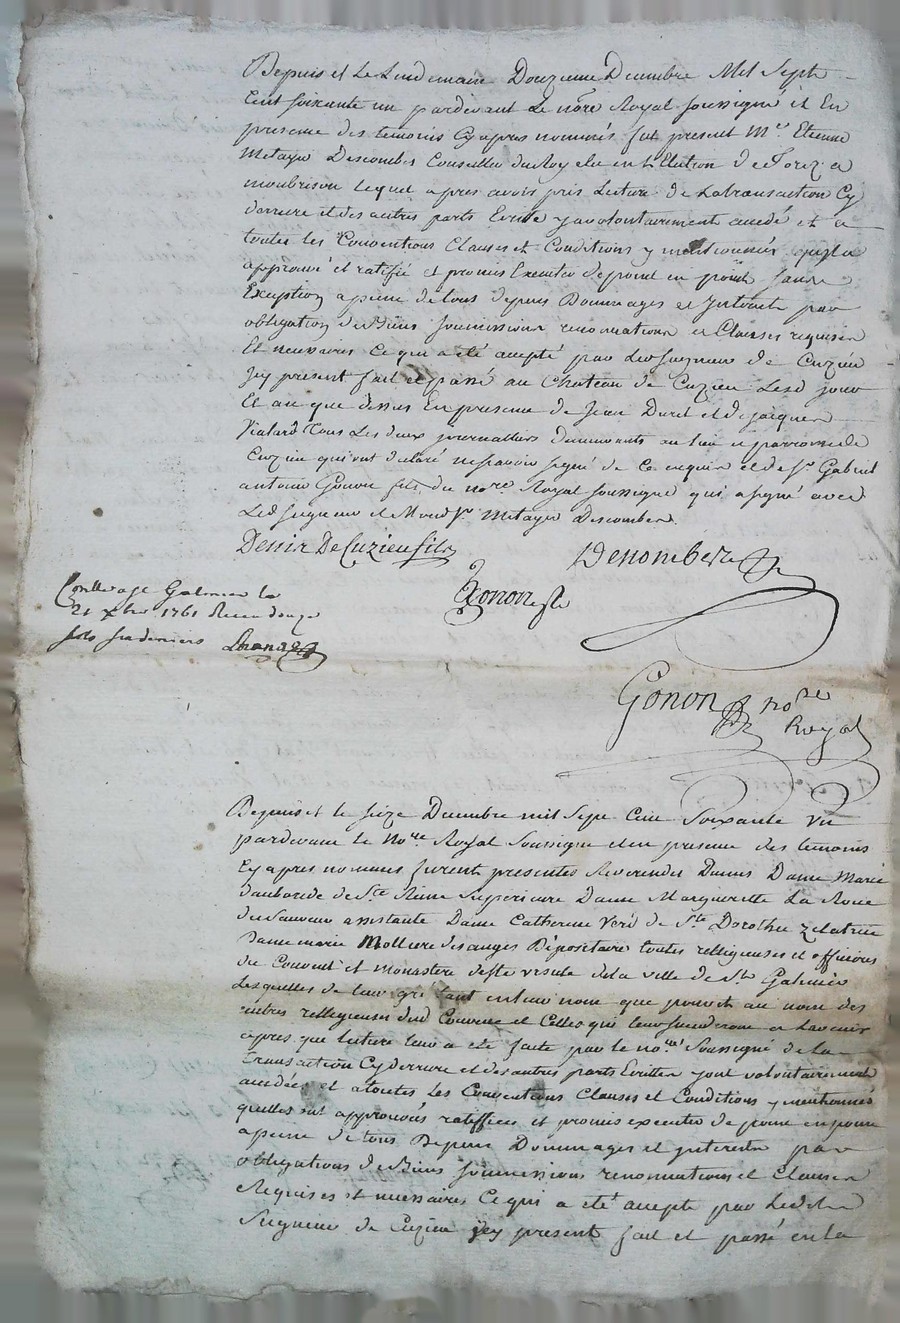 Depuis et Le Lendemain Douzieme Decembre Mil Sept
Cent soixante un pardevant Le no.re Royal soussigné et En
presence des temoins Cy apres nommés fut present M.e Etienne
Metayer Descombes Conseiller du Roy elu en L'Election de forez a
monbrison lequel apres avoir pris Lecture de La transaction Cy
derriere et des autres parts Ecritte y a volontairement accedé et a
toutes les Conventions Clauses et Conditions y mentionnées qu'il a
approuvé et ratifié et promis Executer de point en point sans
Exception a peine de tous depens Dommages et Interets par
obligation de Biens soumissions renonciations et Clauses requises
Et necessaires Ce qui a eté accepté par Led seigneur de Cuzieu
Jcy present fait et passé au Chateau de Cuzieu Lesd jour
Et an que dessus En presence de Jean Duret et de jacques
Vialard Tous Les deux journalliers demeurants au lieu et parroisse de
Cuzieu qui ont declaré ne sçavoir signé de Ce enquis et de s.r Gabriel
antoine Gonon fils du no.re Royal soussigné qui a signé avec
Led seigneur et Mond s.r Metayer Descombes
Denis De Cuzieu fils
Descombes
Gonon fils
Controllé a St Galmier le
21 xbre 1761 Receu douze
sols six deniers
Gonon no.re
Royal
Depuis et le seize Decembre mil Sept Cent Soixante Un
pardevant le No.re Royal Soussigné et en presence des temoins
Cy apres nommés furent presentes Reverendes Dames Dame Marie
de Ste Reine Superieure Dame Margueritte La Roue
du Sauveur assistante Dame Catherine Veré de Ste Dorothée Zelatrice
Dame marie Molliere des anges Depositaire toutes relligieuses et officieres
du Couvent et monastere de Ste Ursule de la ville de St Galmier
Lesquelles de leur gré tant en leur nom que pour et au nom des
autres relligieuses dud Couvent et Celles qui leur succederont a L'avenir
apres que lecture leur a eté faite par le no.re Soussigné de la
Transaction Cy derriere et des autres parts Ecritte y ont volontairement
accedées et a toutes Les Conventions Clauses et Conditions y mentionnés
qu'elles ont approuvées ratiffiées et promis executer de point en point
a peine de tous Depens Dommages et interets par
obligations de Biens soumissions renonciations et Clauses
Requises et necessaires Ce qui a eté accepté par Ledit
Seigneur de Cuzieu jcy present fait et passé en la